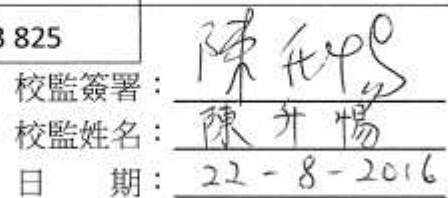 825
校監簽署：
校監姓名：陳升惕
日 期：22-8-2016